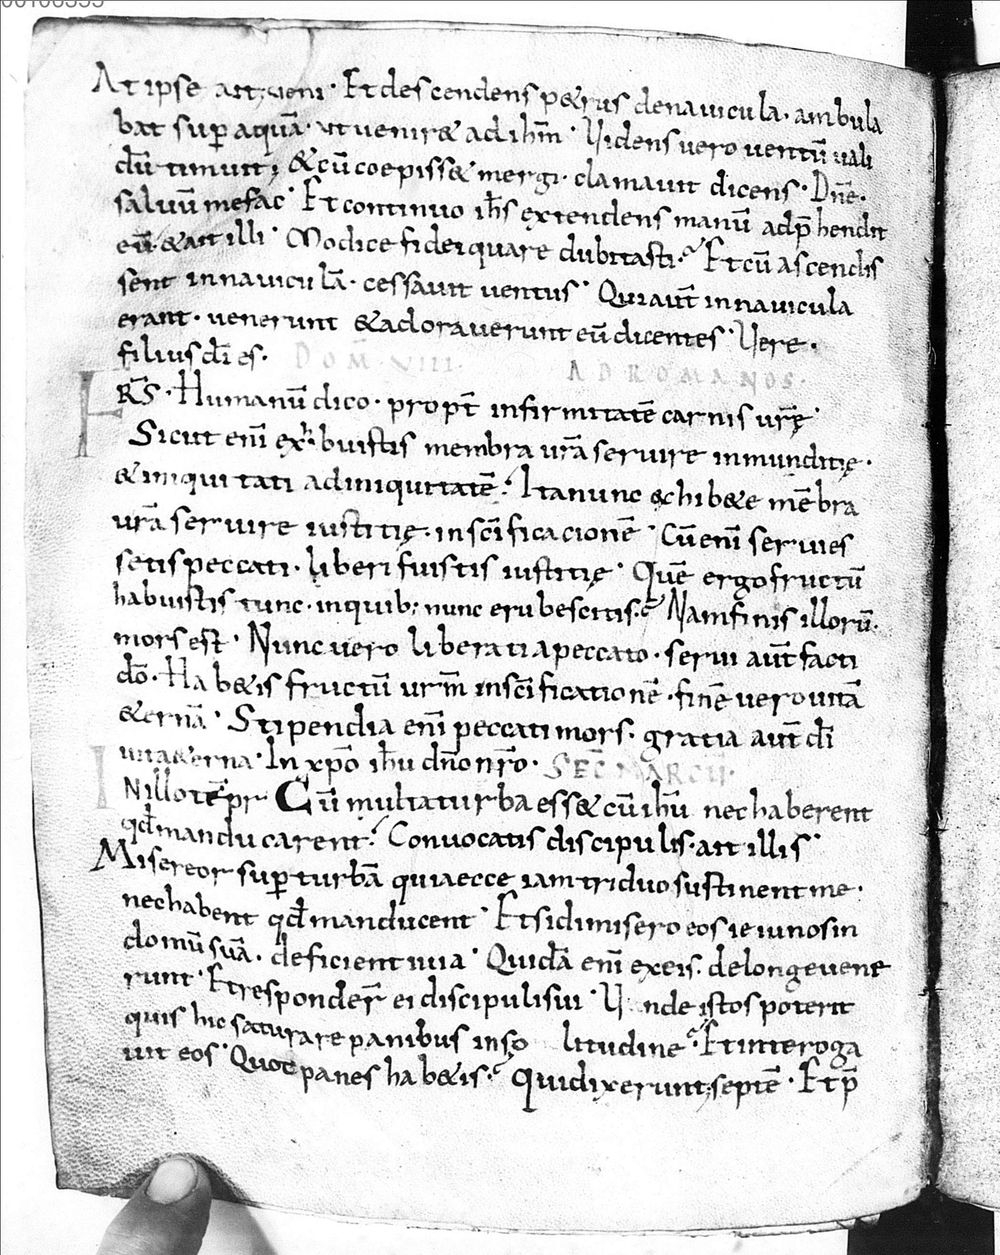 At ipse ait; veni· Et descendens p&rus denavicula· ambula
bat sup̄ aquā· ut venir& ad ih̄m· Videns vero ventū vali
dū timuit; &cū coepiss& mergi· clamavit dicens· Dn̄e·
salvū mefac· Et continuo ih̄s extendens manū adp̄hendit
eū· &ait illi· Modice fidei quare dubitasti·? Et cū ascendis
sent innaviculā· cessavit ventus· Qui aūt innavicula
erant· venerunt &adoraverunt eū dicentes· Vere·
filius dī es· DOM̄· VIII· AD ROMANOS·
FR̄S· Humanū dico· propt̄ infirmitatē carnis vr̄ę·
Sicut enī exhibuistis membra vr̄a servire inmunditię·
&iniquitati adiniquitatē·: Ita nunc exhib&e mēbra
vr̄a servire iustitię· inscīficacionē· Cū enī servies
setis peccati· liberi fuistis iustitię· Quē ergo fructū
habuistis tunc· inquib; nunc erubescitis·? Nam finis illorū·
mors est· Nunc vero liberati apeccato· servi aūt facti
dō· Hab&is fructū vr̄m inscīficationē· finē vero vitā
&ernā· Stipendia enī peccati mors· gratia aūt dī
vita&erna· In xp̄o ih̄u dn̄o nr̄o· SEC̄ MARCŪ·
INillo tēpr· Cū multa turba ess& cū ih̄u nec haberent
qd̄ manducarent·: Convocatis discipulis· ait illis·
Misereor sup̄ turbā quia ecce iam triduo sustinent me·
nec habent qd̄ manducent· Et si dimisero eos ieiunos in
domū suā· deficient invia· Quidā enī exeis· delonge vene
runt· Et responder̄ ei discipuli sui· Unde istos poterit
quis hic saturare panibus inso litudine·? Et interroga
vit eos· Quot panes hab&is·? Qui dixerunt; septē· Et p̄